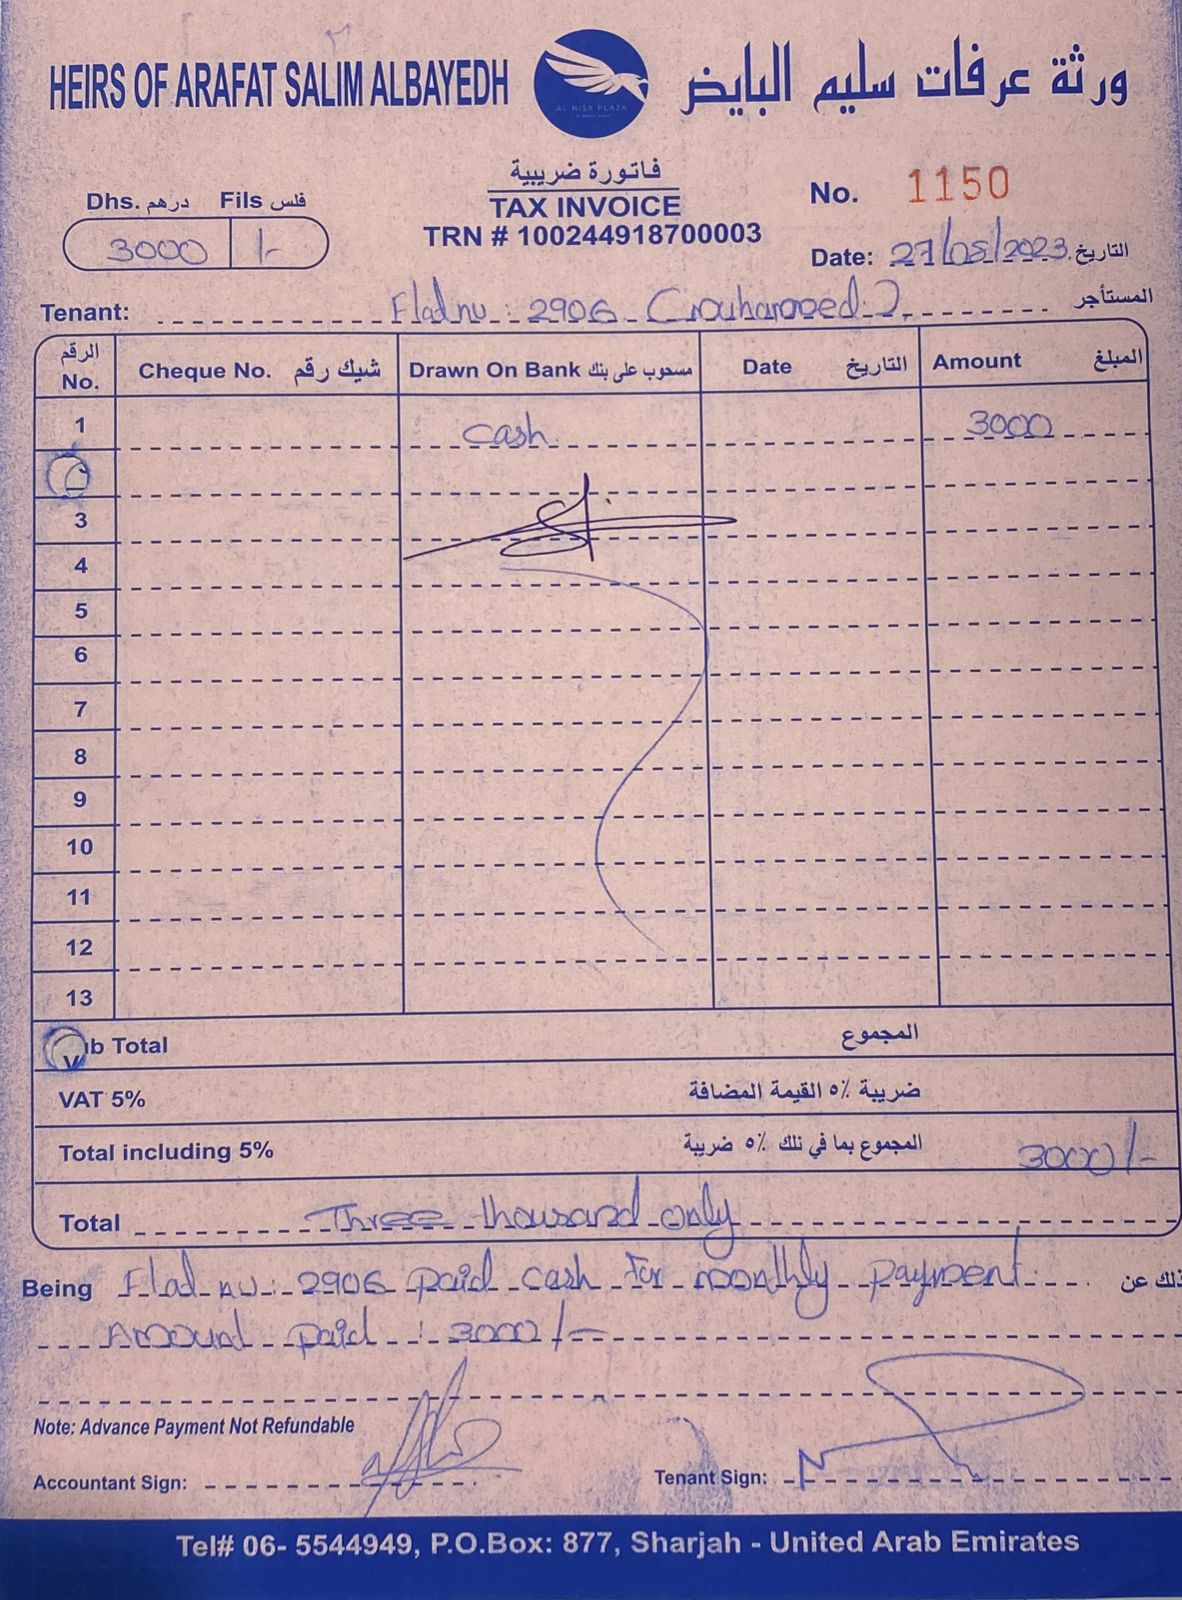 HEIRS OF ARAFAT SALIM ALBAYEDH
ورثة عرفات سليم البايض
AL NISR PLAZA
فاتورة ضريبية
TAX INVOICE
TRN # 100244918700003
Dhs. درهم Fils فلس
3000 /-
No. 1150
Date: 27/05/2023 التاريخ
Tenant: Flat no : 2906 المستأجر
الرقم No. Cheque No. شيك رقم Drawn On Bank مسحوب على بنك Date التاريخ Amount المبلغ
1 Cash 3000
3
4
5
6
7
8
9
10
11
12
13
ub Total المجموع
VAT 5% ضريبة ٥٪ القيمة المضافة
Total including 5% المجموع بما في تلك ٥٪ ضريبة 3000/-
Total Three thousand only
Being Flat no : 2906 paid cash for monthly payment ذلك عن
Amount paid : 3000/-
Note: Advance Payment Not Refundable
Accountant Sign:
Tenant Sign:
Tel# 06- 5544949, P.O.Box: 877, Sharjah - United Arab Emirates